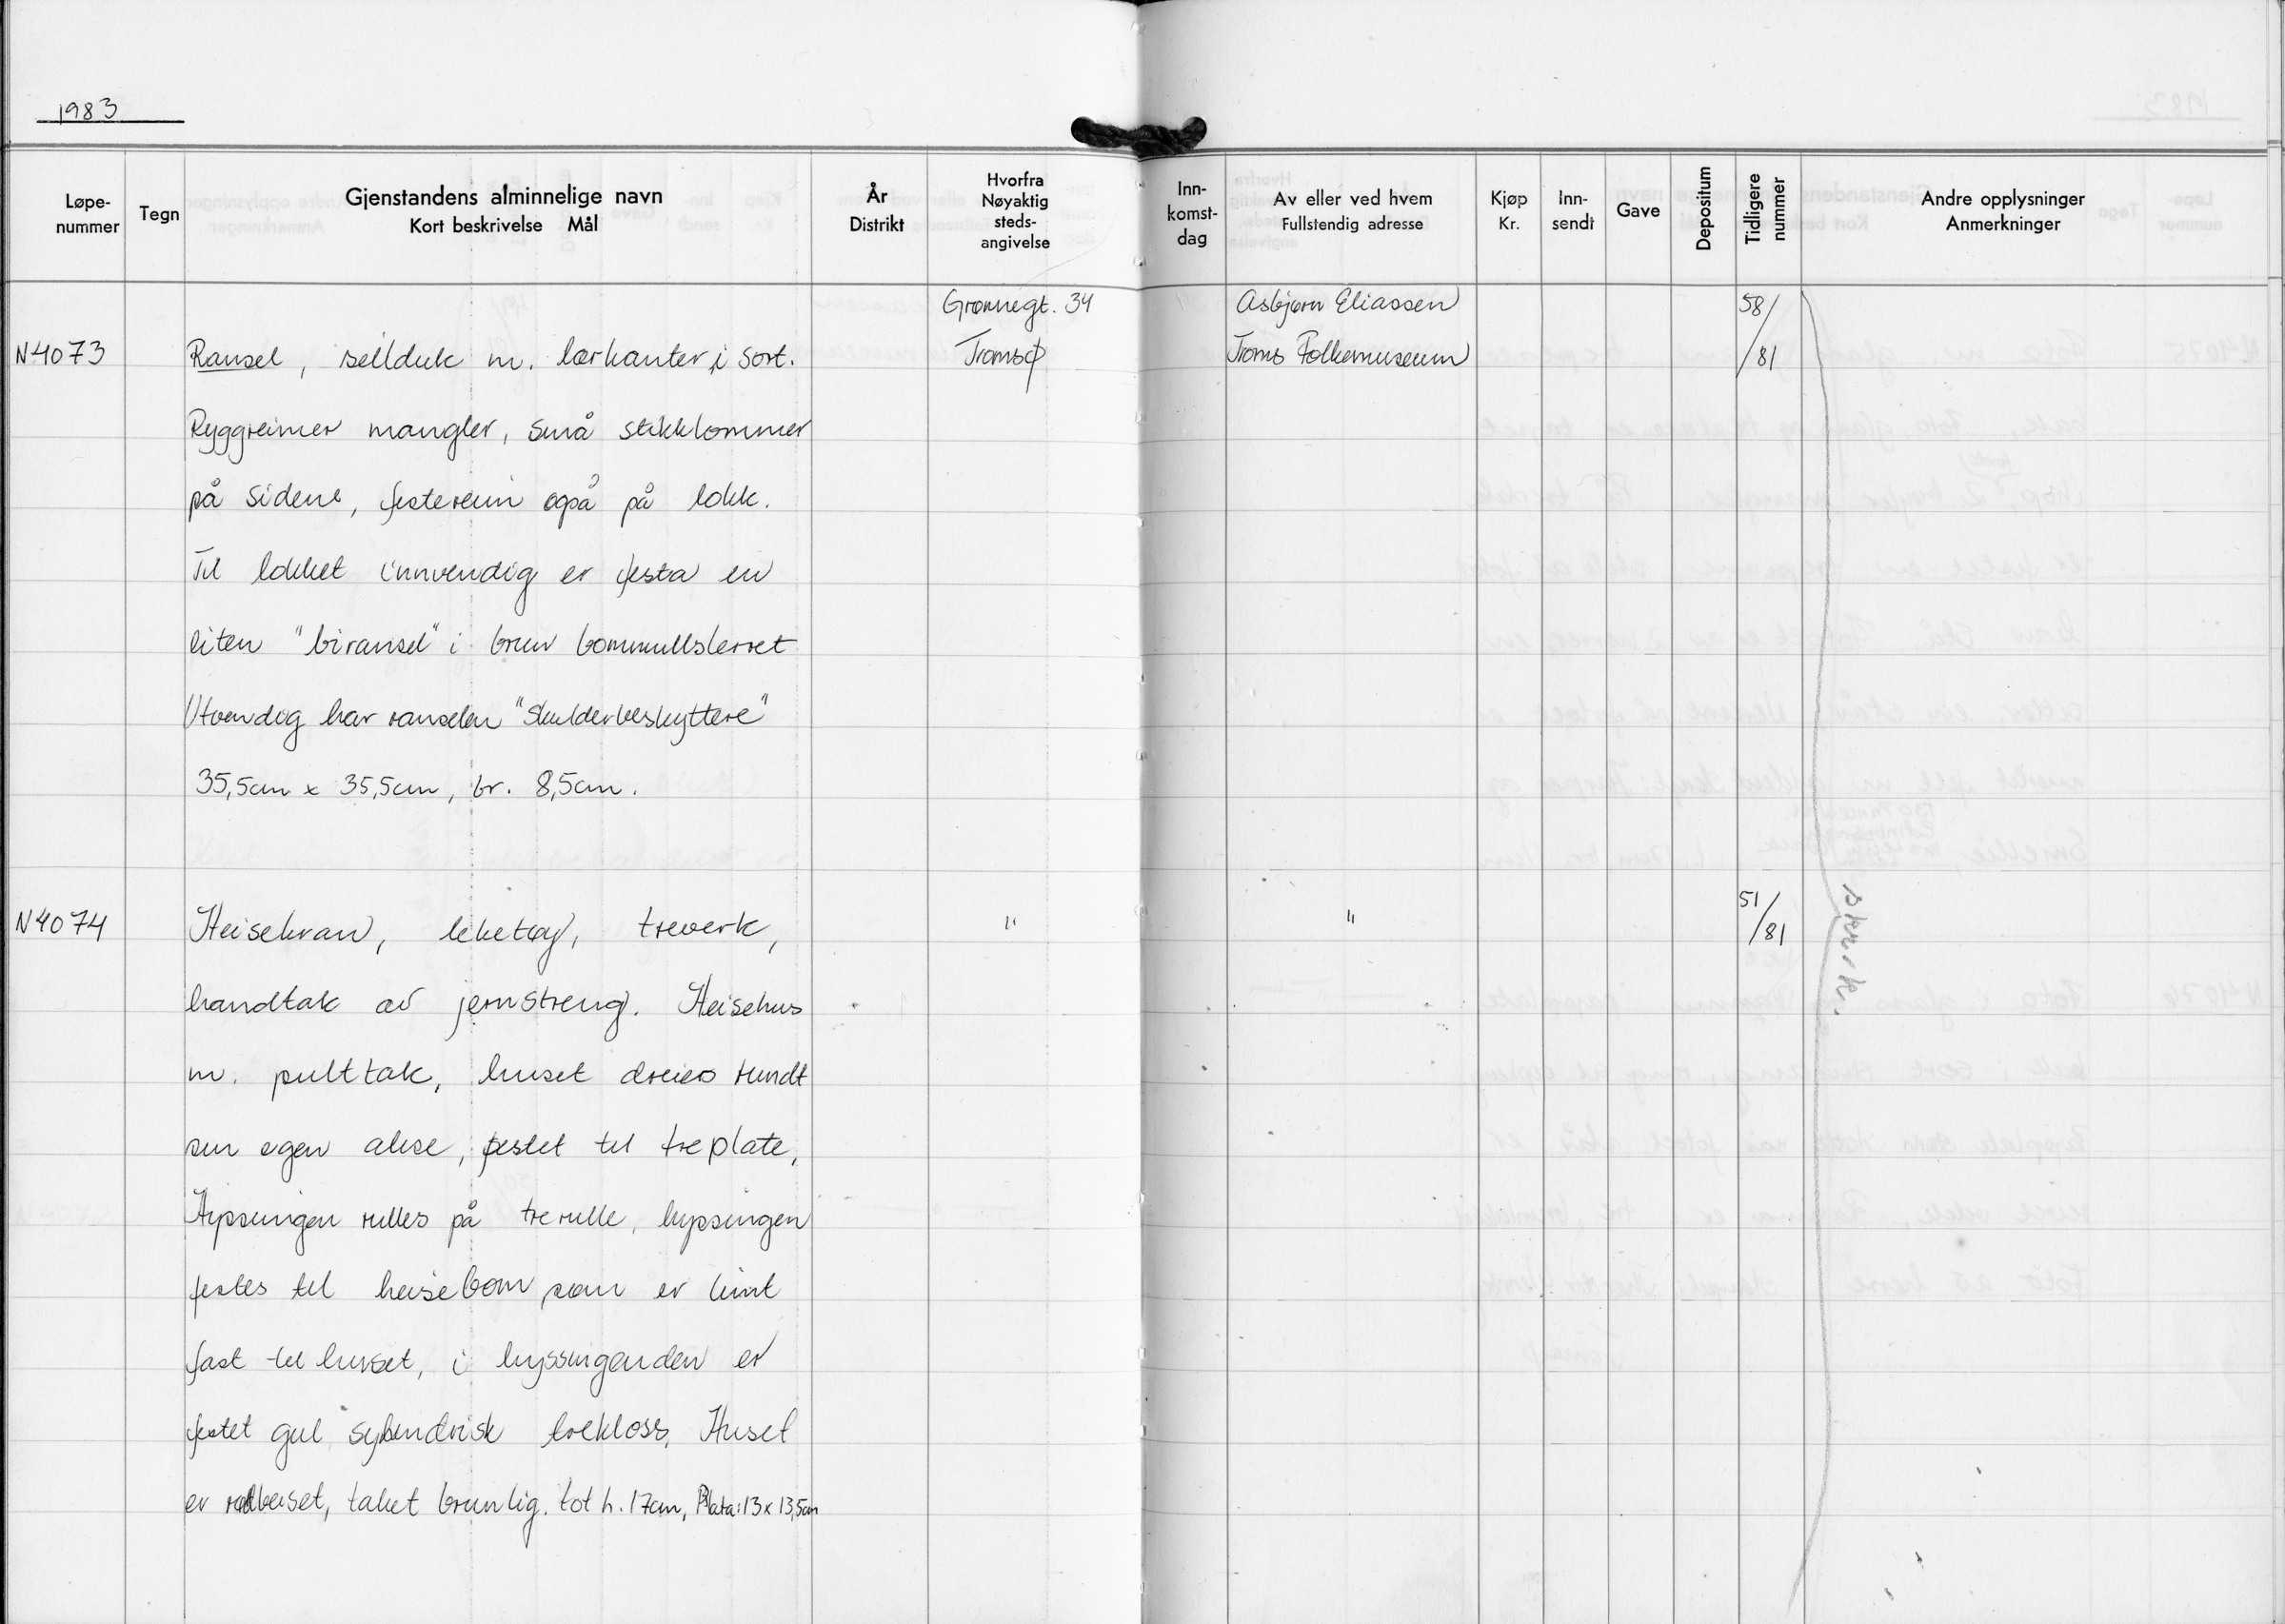 1983
Løpe-nummer
Tegn
Gjenstandens alminnelige navn
Kort beskrivelse Mål
År
Distrikt
Hvorfra
Nøyaktig
steds-
angivelse
Inn-
komst-
dag
Av eller ved hvem
Fullstendig adresse
Kjøp
Kr.
Inn-
sendt
Gave
Depositum
Tidligere
nummer
Andre opplysninger
Anmerkninger
Grønnegt. 34 Asbjørn Eliassen 58/
N4073 Ransel, seilduk m. lærkanter i sort. Tromsø Troms Folkemuseum /81
Ryggreimer mangler, små stikklommer
på sidene, festereim også på lokk.
Til lokket innvendig er festa en
liten "biransel" i brun bommullslerret
Utvendig har ranselen "Skulderbeskyttere"
35,5cm x 35,5cm, br. 8,5cm.
N4074 Heisekran, leketøy, treverk, " " 51/81
handtak av jernstreng. Heisehus
m. pulttak, huset dreies rundt
sin egen akse, festet til treplate,
Hyssingen rulles på trerulle, hyssingen
festes til heisebom som er limt
fast til huset, i hyssingenden er
festet gul sylindrisk trekloss, Huset
er rødbeiset, taket brunlig. tot h. 17cm, Plata: 13 x 13,5cm